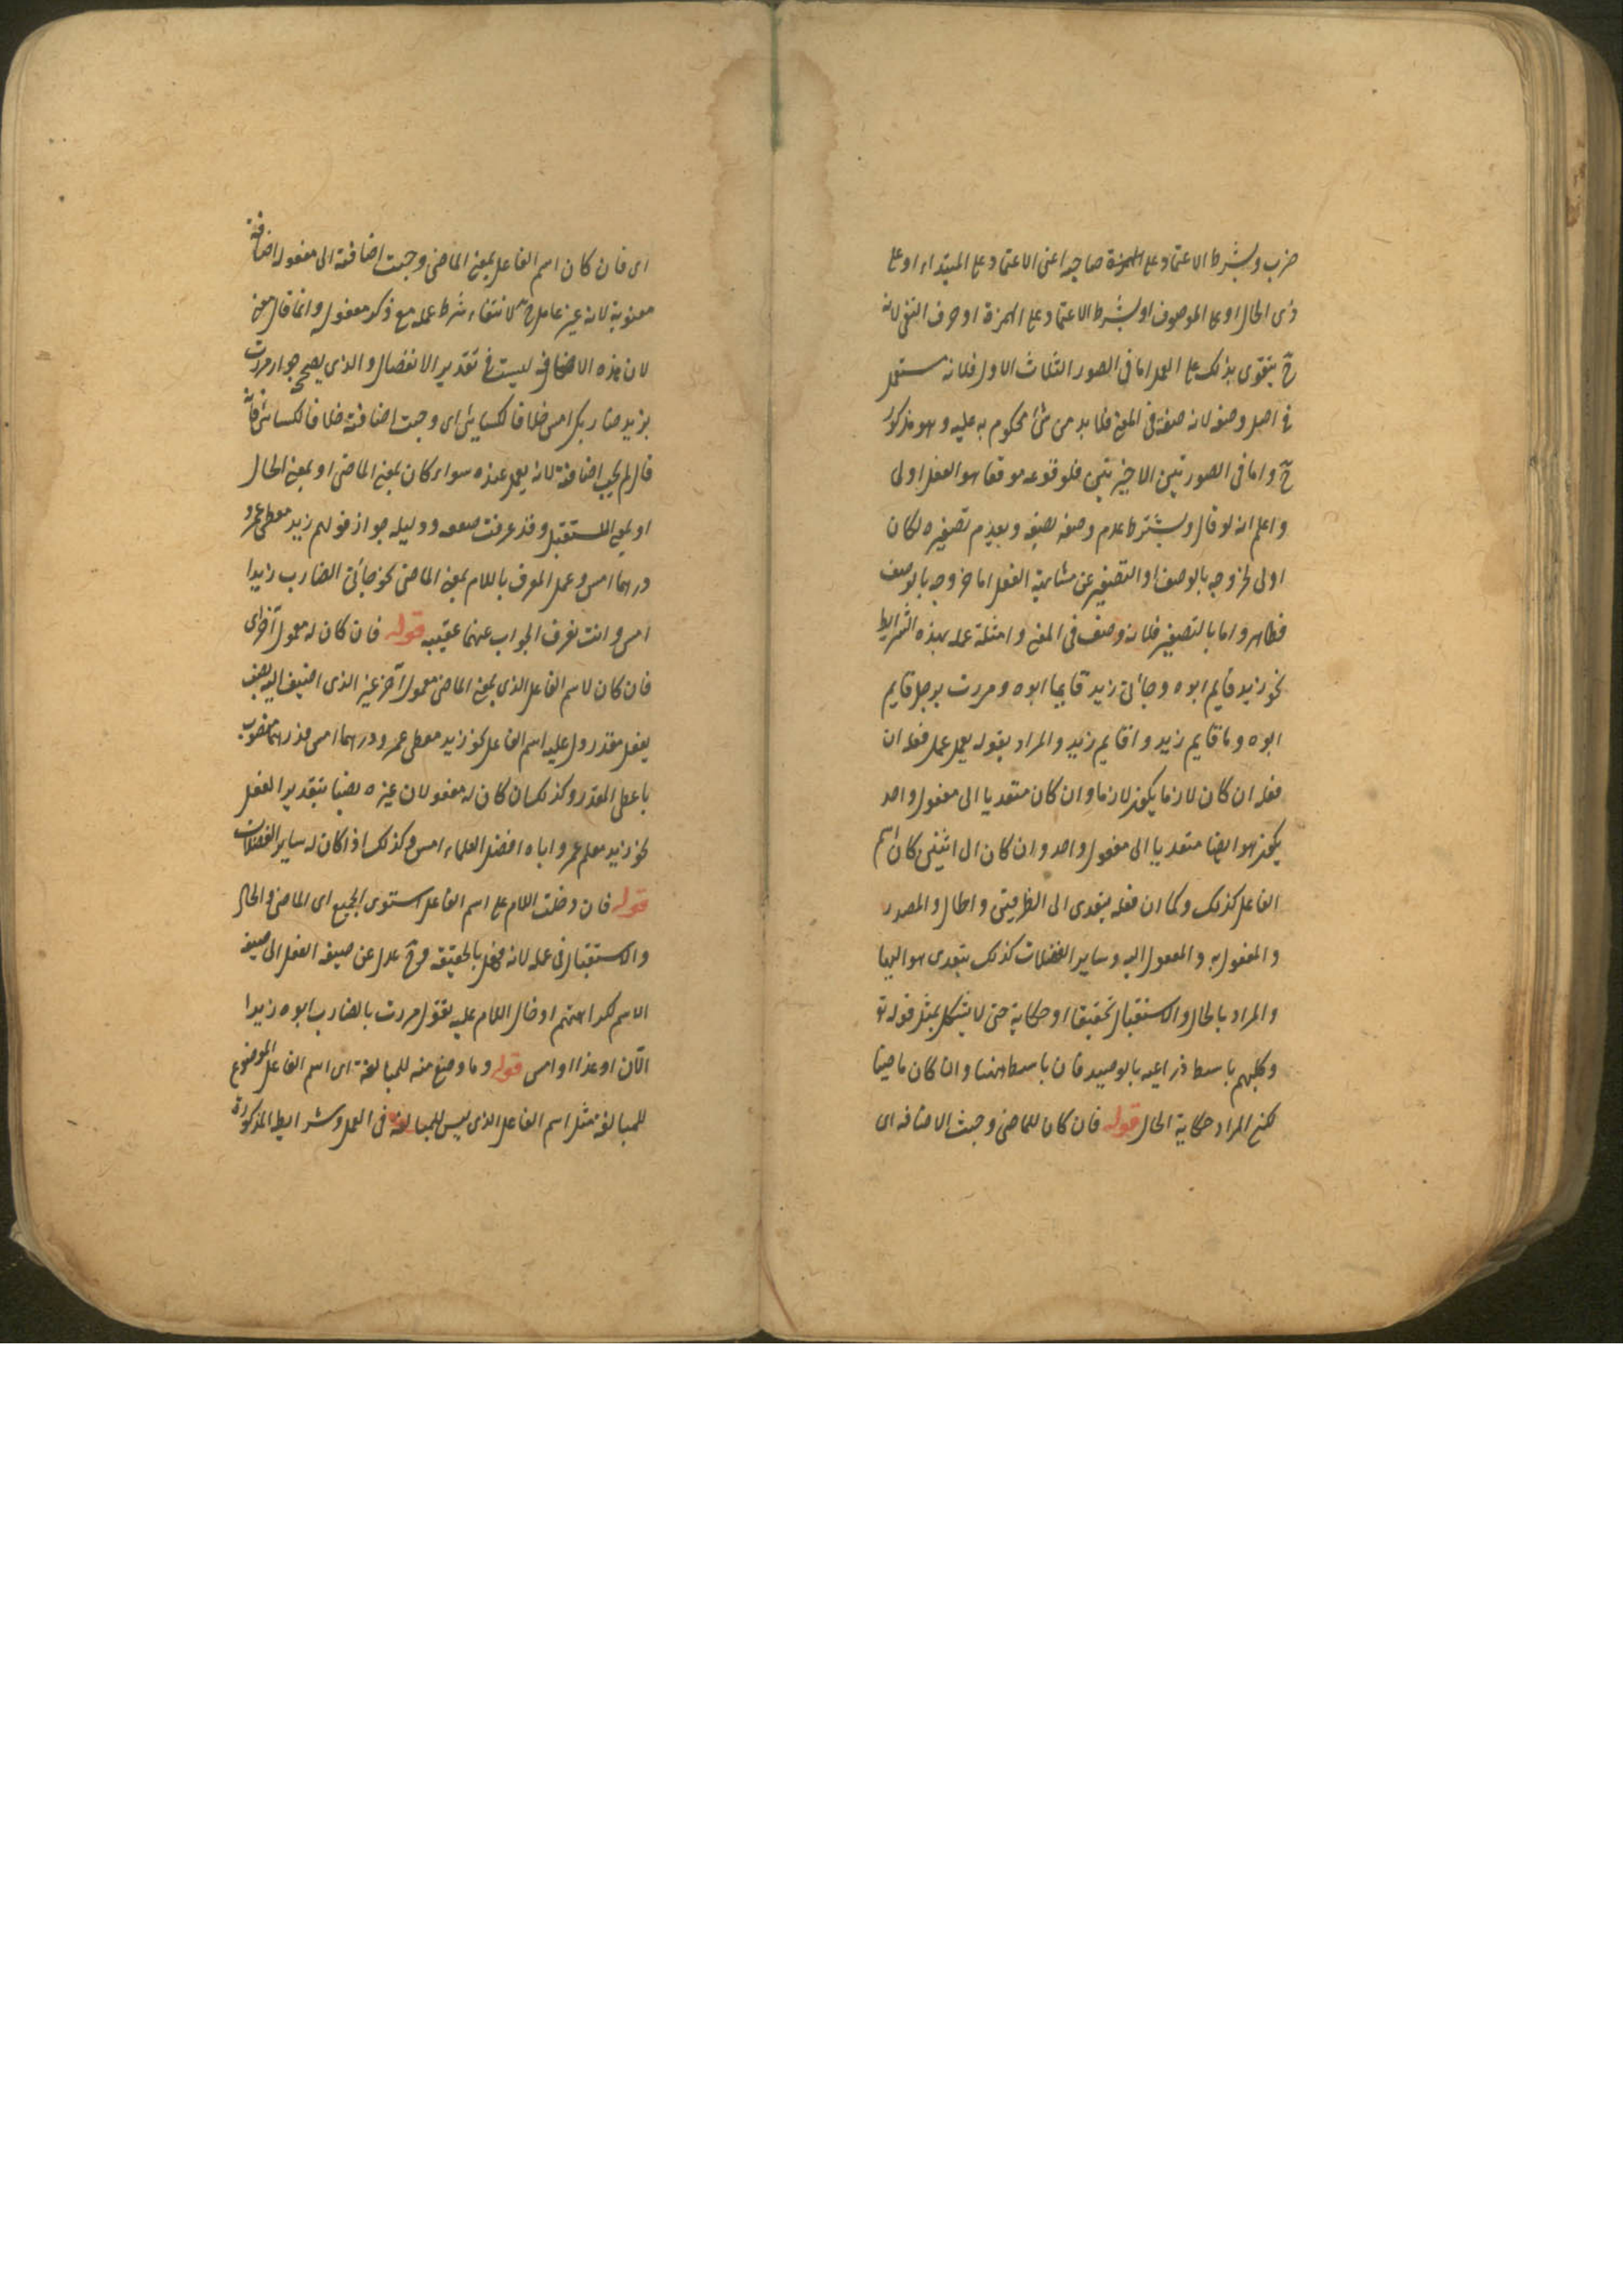 ضرب وبشرط الاعتماد على الهمزة صاحبه اعنى الاعتماد على المبتداء او على
ذى الحال او على الموصوف او بشرط الاعتماد على الهمزة او حرف النفى لانه
ح يتقوى بذلك على العمل اما فى الصور الثلاث الاول فلانه مستعمل
فى اصل وصفه لانه صفة فى المعنى فلا بد من شئ محكوم به عليه وهو مذكور
ح واما فى الصورتين الاخيرتين فلوقوعه موقعا هو الفعل اولى
واعلم انه لو قال ويشترط عدم وصفه بصفة وبعدم تصغيره لكان
اولى لخروجه بالوصف او التصغير عن مشابهة الفعل اما خروجه بالوصف
فظاهر واما بالتصغير فلانه وصف فى المعنى وامثلة عمله بهذه الشرايط
نحو زيد قايم ابوه وجائنى زيد قايما ابوه ومررت برجل قايم
ابوه وما قايم زيد واقايم زيد والمراد بقوله يعمل عمل فعله ان
فعله ان كان لازما يكون لازما وان كان متعديا الى مفعول واحد
يكون هو ايضا متعديا الى مفعول واحد وان كان الى اثنين كان اسم
الفاعل كذلك وكما ان فعله يتعدى الى الظرفين والحال والمصدر
والمفعول به والمفعول اليه وساير الفضلات كذلك يتعدى هو اليها
والمراد بالحال والاستقبال تحقيقا او حكاية حتى لا يشكل بمثل قوله تع
وكلبهم باسط ذراعيه بالوصيد فان باسط ههنا وان كان ماضيا
لكن المراد حكاية الحال قوله فان كان للماضى وجبت الاضافه اى
اى فان كان اسم الفاعل بمعنى الماضى وجبت اضافته الى مفعوله اضافة
معنوية لانه غير عامل ح لانتفاء شرط عمله مع ذكر مفعوله وانما قال معنى
لان هذه الاضافه ليست فى تقدير الانفصال والذى يصحح جواز مررت
بزيد ضاربك امس خلافا للكسائى اى وجبت اضافته خلافا للكسائى فانه
قال لم يجب اضافته لانه يعمل عنده سواء كان بمعنى الماضى او بمعنى الحال
او بمعنى المستقبل وقد عرفت ضعفه ودليله جواز قولهم زيد معطى عمرو
درهما امس وعمل المعرف باللام بمعنى الماضى نحو جائنى الضارب زيدا
امس وانت تعرف الجواب عنهما عقيبه قوله فان كان له معمول آخر اى
فان كان لاسم الفاعل الذى بمعنى الماضى معمول آخر غير الذى اضيف اليه نصب
بفعل مقدر دل عليه اسم الفاعل نحو زيد معطى عمرو درهما امس فدرهما منصوب
باعطى المقدر وكذلك ان كان له مفعولان غيره نصبا بتقدير الفعل
نحو زيد معلم عمرو اباه افضل العلماء امس وكذلك اذا كان له ساير الفضلات
قوله فان دخلت اللام على اسم الفاعل استوى الجميع اى الماضى والحال
والاستقبال فى عمله لانه فعل بالحقيقه وح عدل عن صيغه الفعل الى صيغه
الاسم لكراهتهم ادخال اللام عليه تقول مررت بالضارب ابوه زيدا
الآن او غدا او امس قوله وما وضع منه للمبالغة اى اسم الفاعل الموضوع
للمبالغة مثل اسم الفاعل الذى ليس للمبالغة فى العمل وشرايط المذكورة